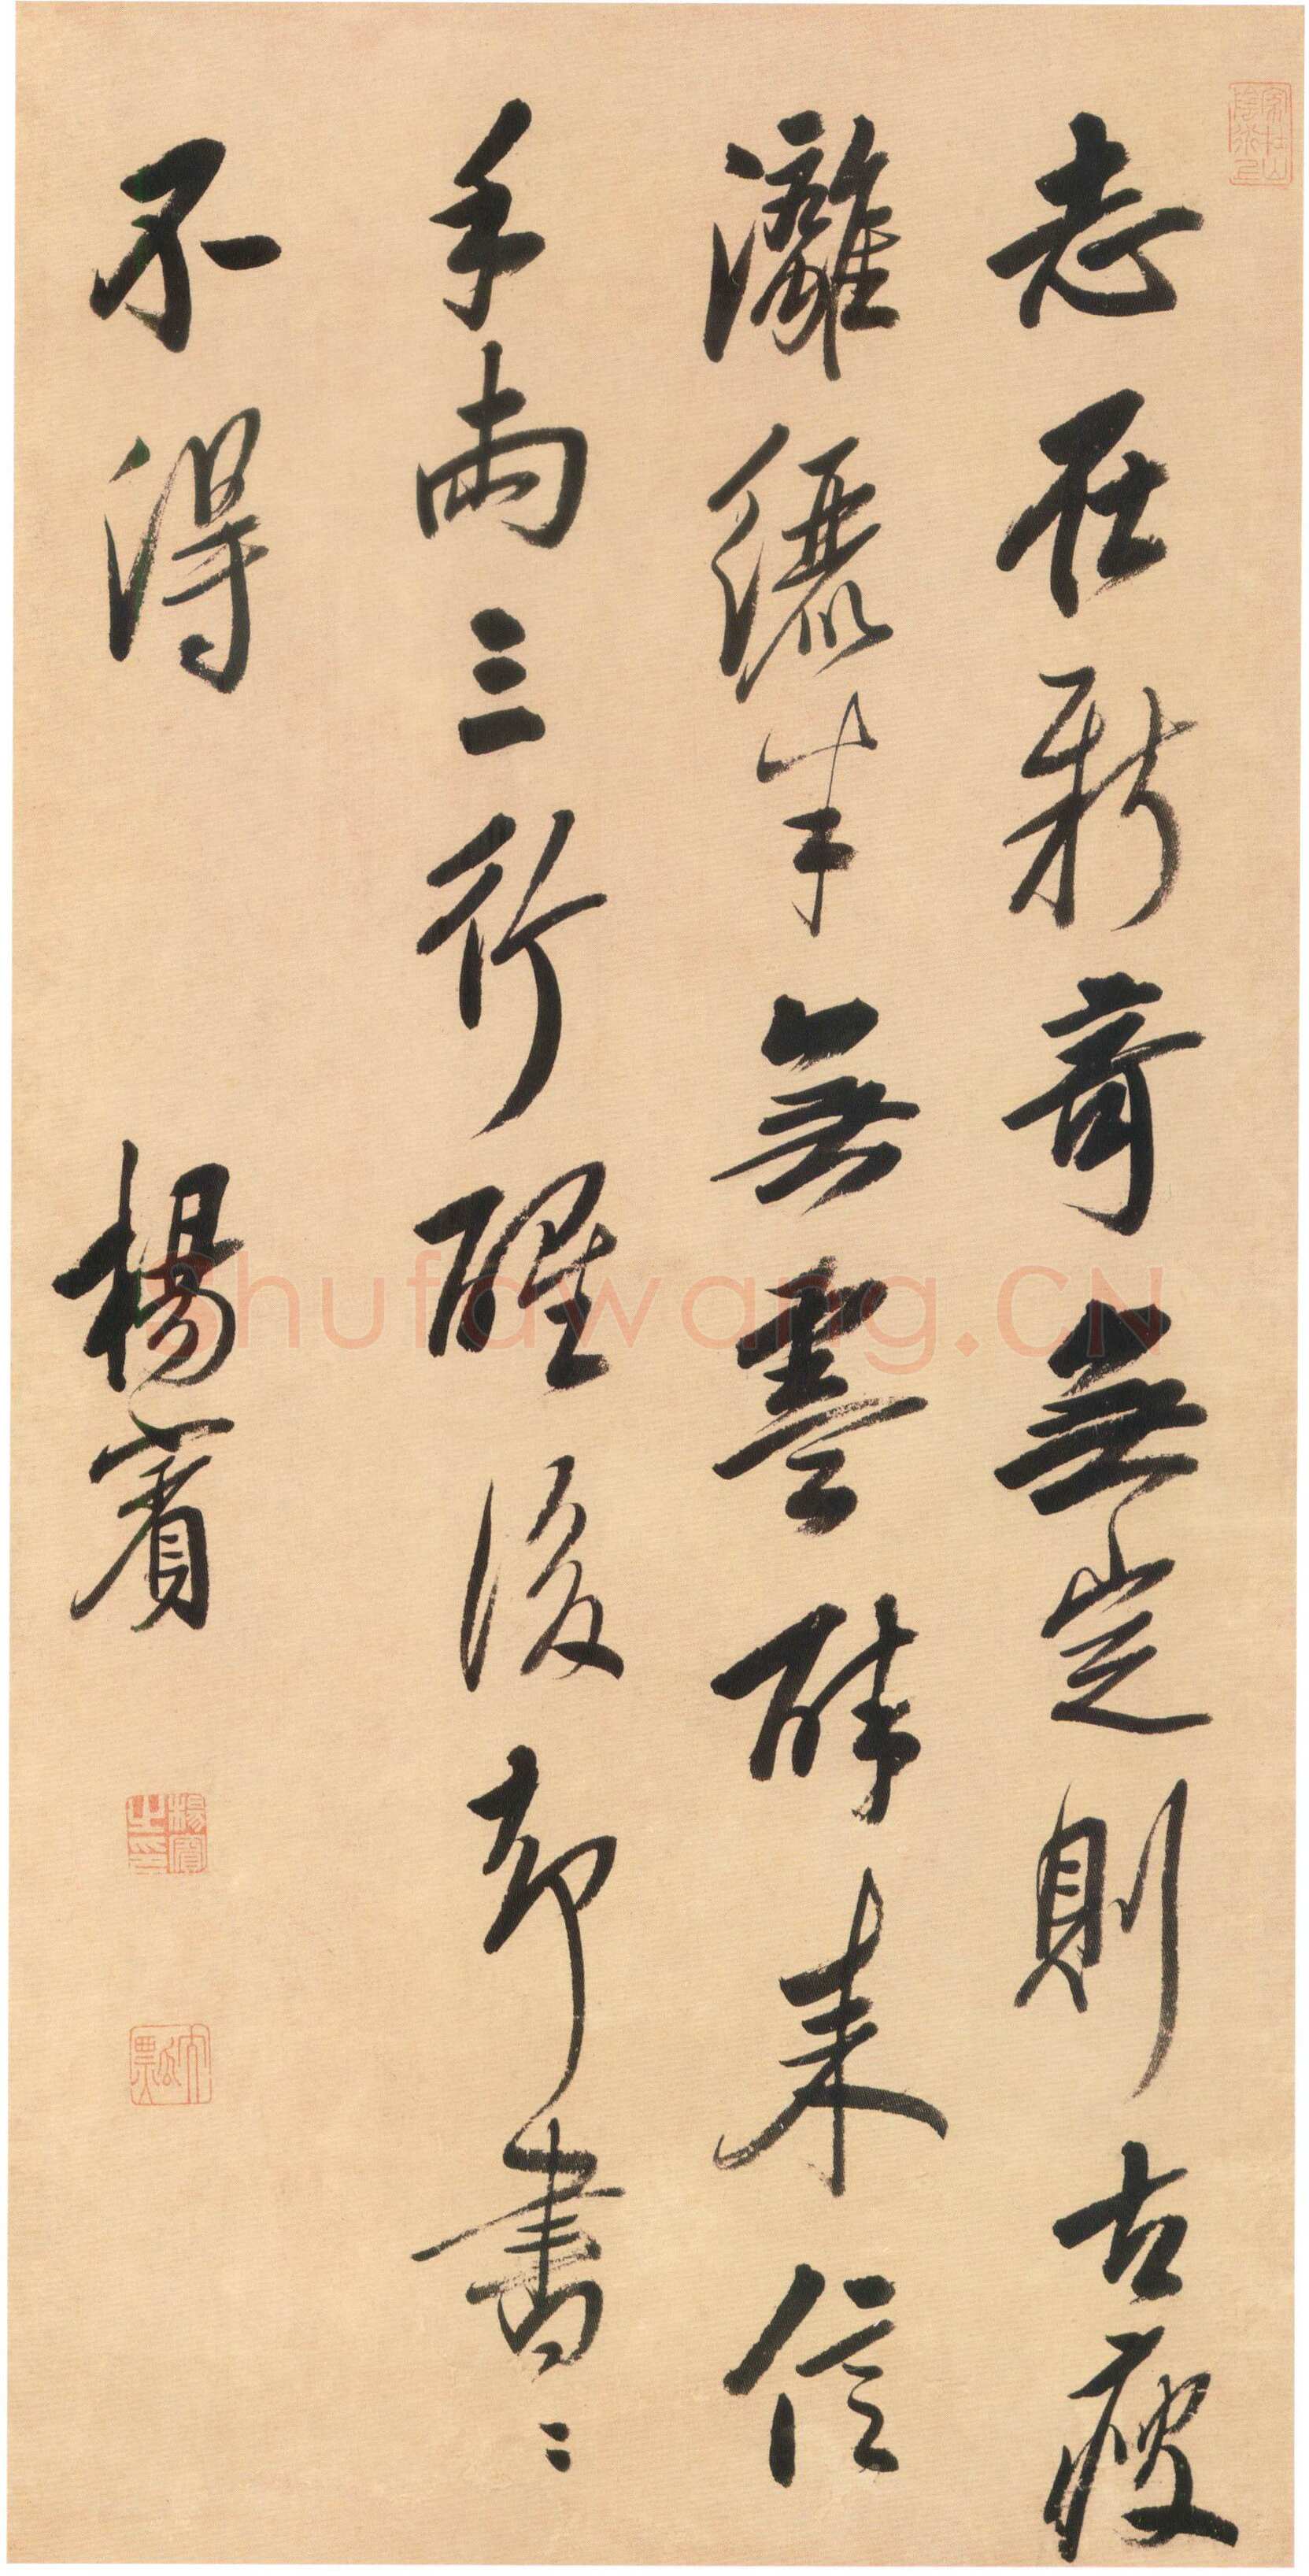 志在新奇無定則古瘦
灕纚半無墨醉來信
手兩三行醒後却書〻
不得
楊賓
楊賓之印
大瓢
Shufawang.CN